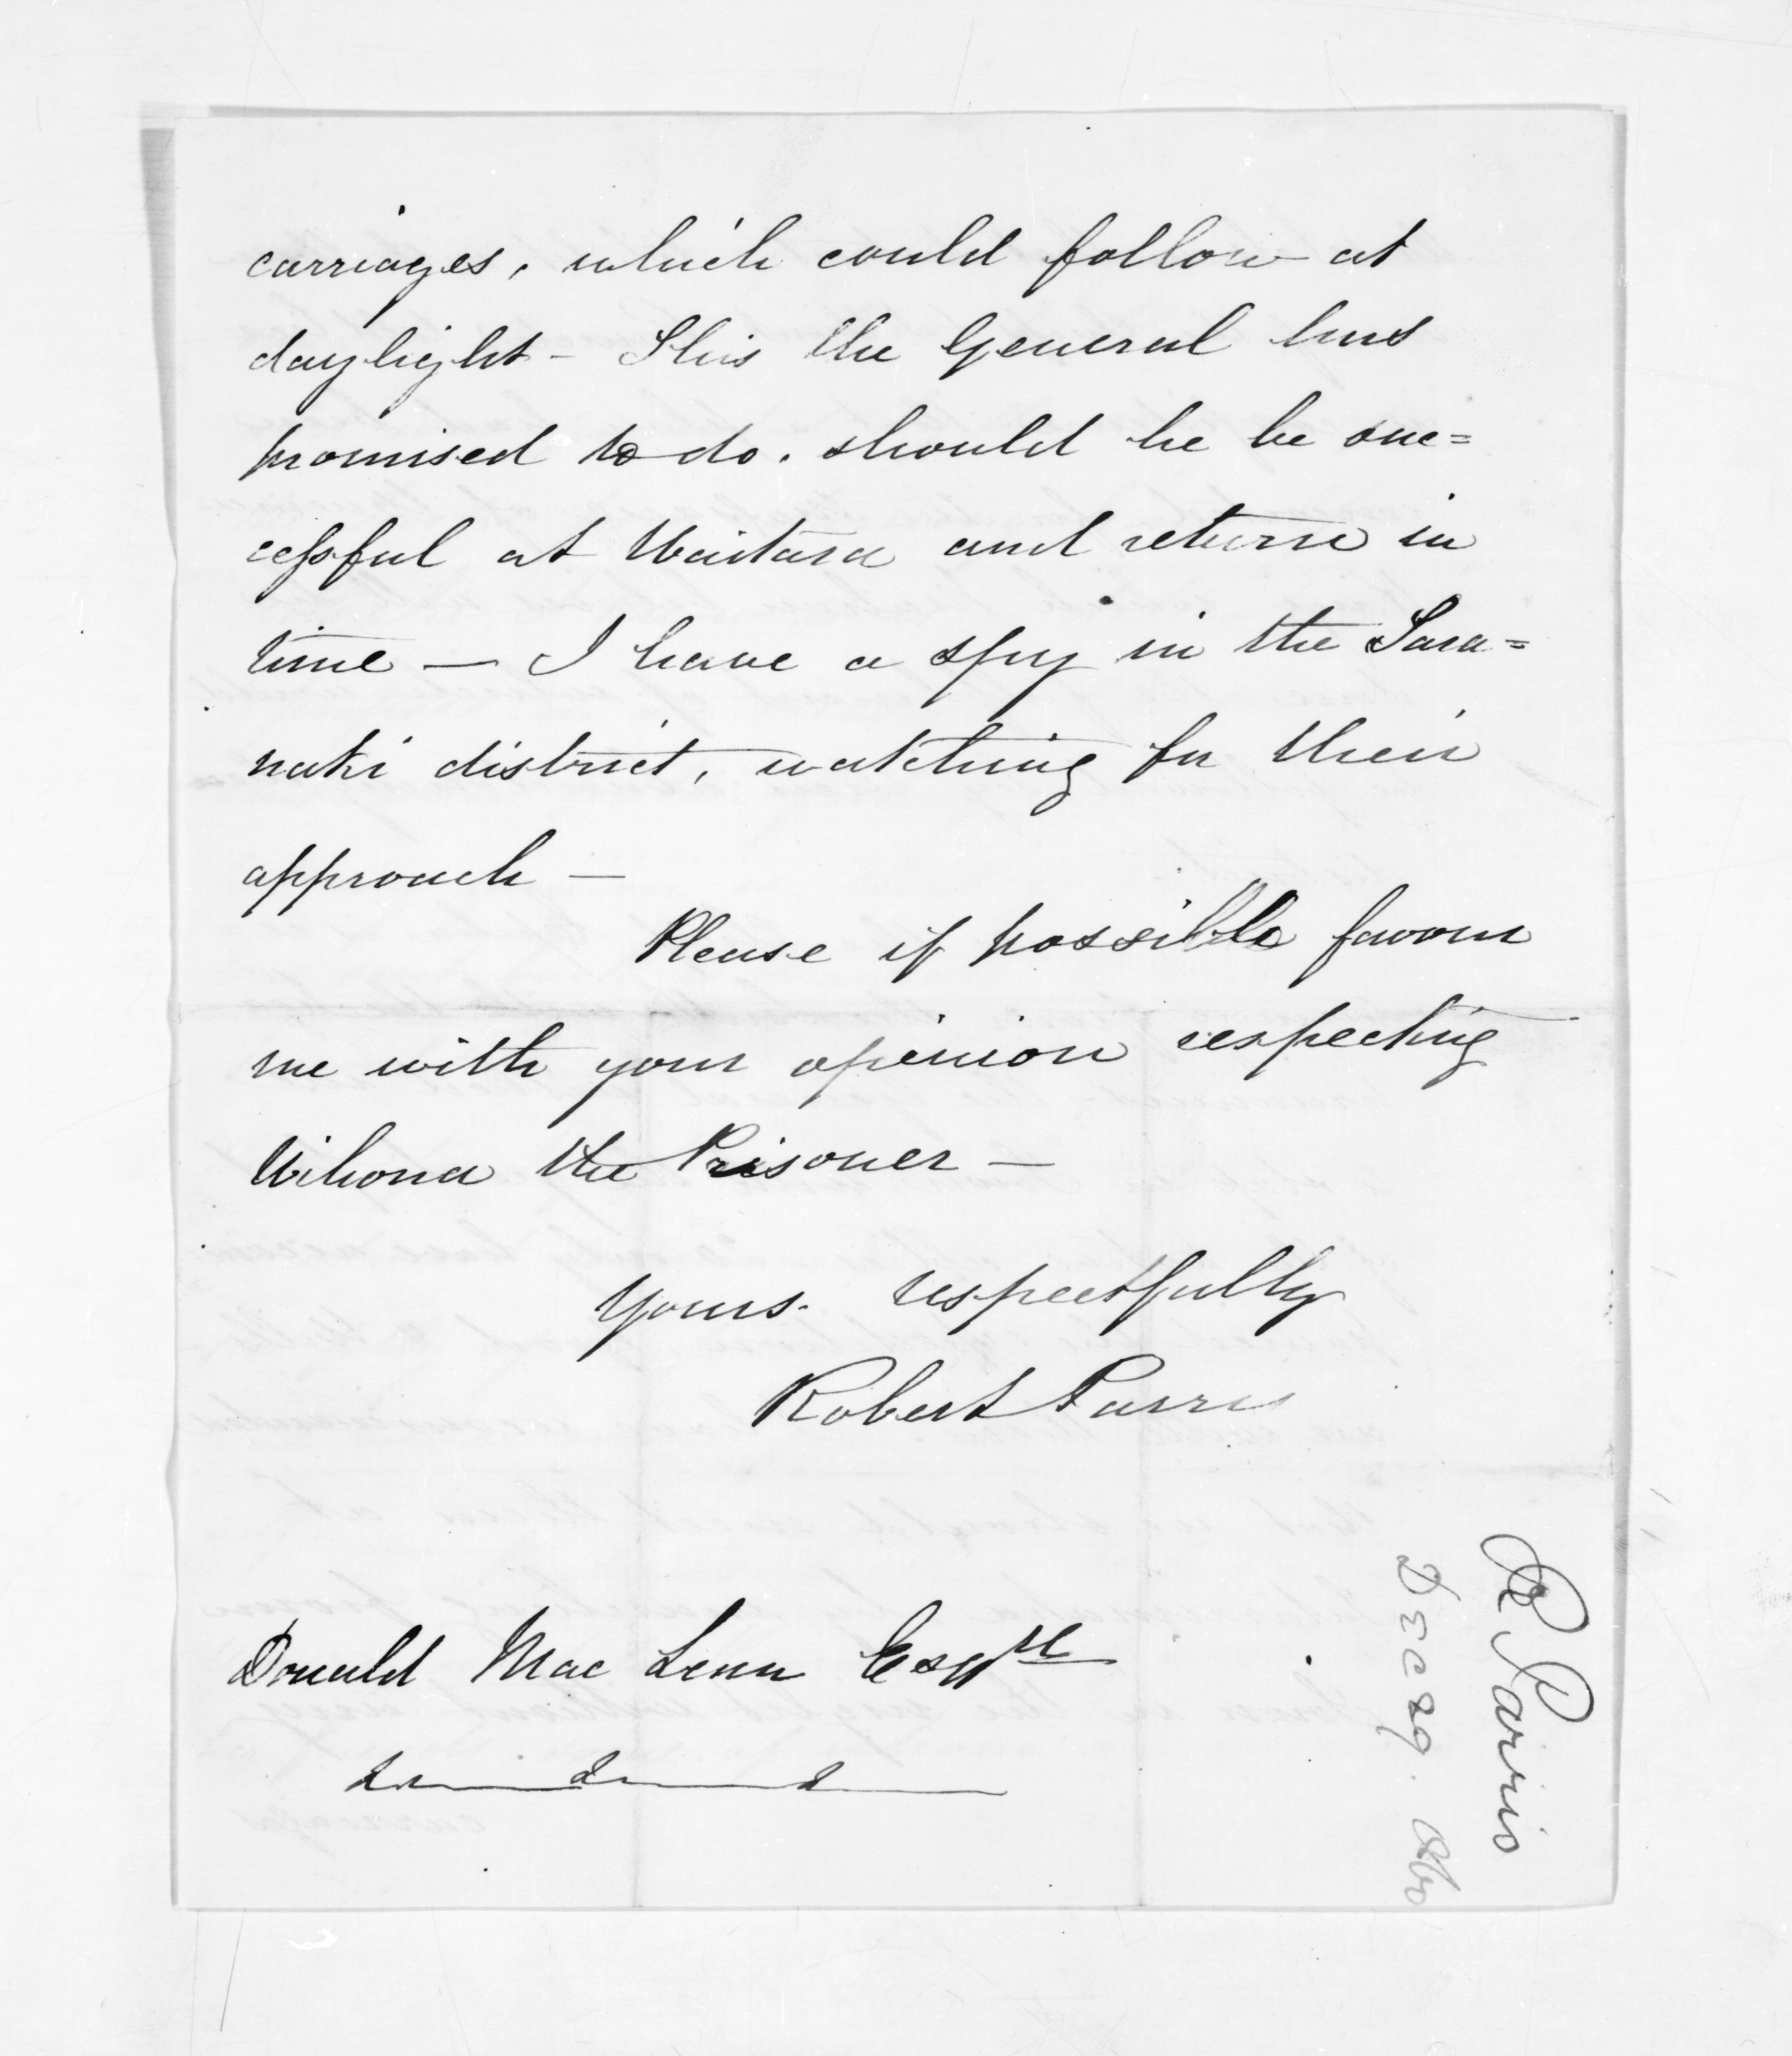 carriages, which could follow at
daylight - This the General has
promised to do. should he be suc=
cessful at Waitara and return in
time — I have a spy in the Tara=
naki district, watching for their
approach —
Please if possible favour
me with your opinion respecting
Wihona the Prisoner —
Yours respectfully
Robert Parris
Donald Mac Lean Esqre
R Parris
Dec 29. 1860